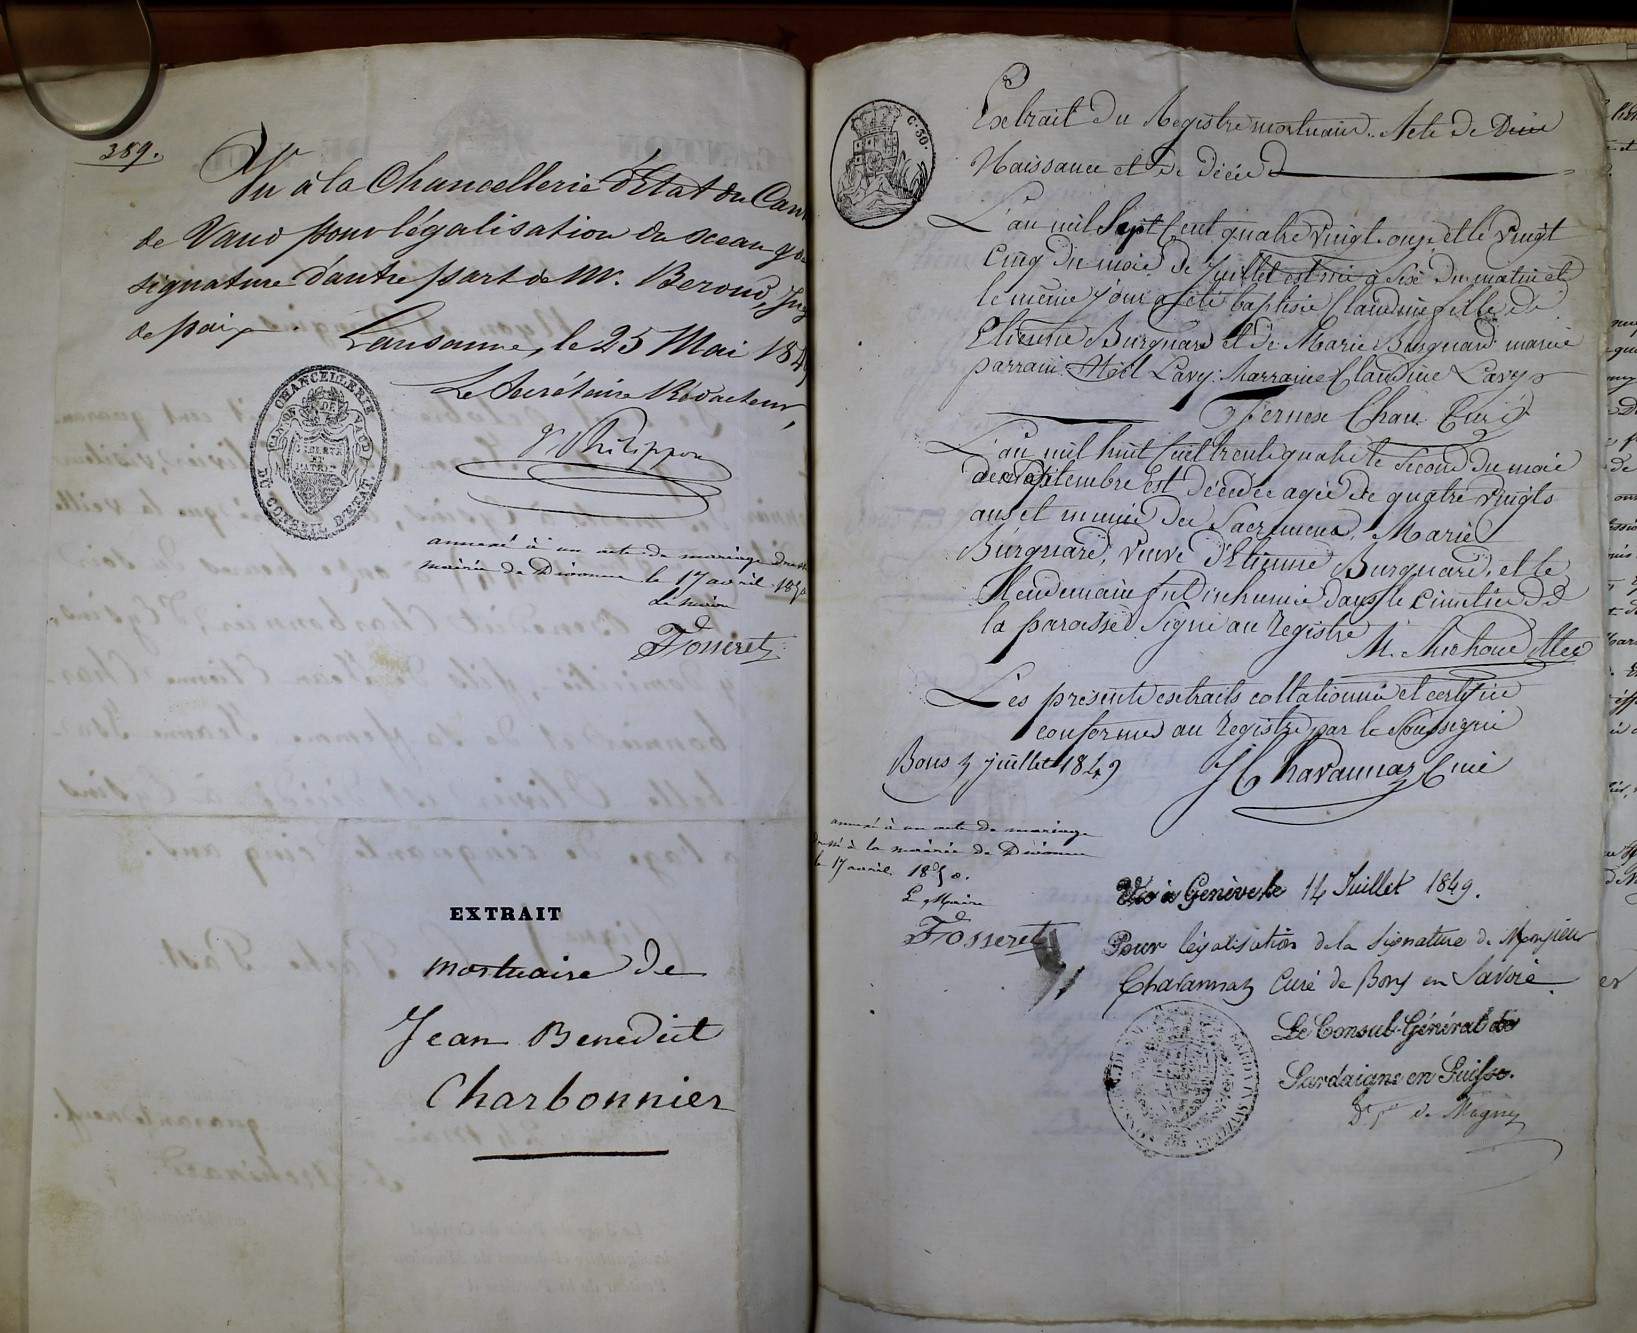 389.
Vu à la Chancellerie d'Etat du Can
de Vaud pour légalisation du sceau &
signature d'autre part de Mr. Beroud, Jug
de paix
Lausanne, le 25 Mai 184
CHANCELLERIE
DU CONSEIL D'ETAT
CANTON DE VAUD
LIBERTÉ
ET
PATRIE
Le Secrétaire Rédacteur,
Philippon
annexé à un acte de mariage dressé
mairie de Divonne le 17 avril 1850
Le Maire
Fosseret
EXTRAIT
mortuaire de
Jean Benedict
Charbonnier
C. 50.
Extrait du Registre mortuaire. Acte de
Naissance et de décéd
L'an mil Sept Cent quatre vingt onze et le vingt
Cinq du mois de Juillet est née à six du matin et
le même jour a été baptisée Claudine fille de
Etienne Burgnard et de Marie Burgnard mariée
parrain Noël Lavy: Marraine Claudine Lavy
Pernex Chan. Curé
L'an mil huit Cent trente quatre le Second du mois
de Septembre est décédée agée de quatre vingts
ans et munie des Sacremens, Marie
Burgnard, veuve d'Etienne Burgnard, et le
lendemain fut inhumée dans le Cimetière de
la paroisse. Signé au Registre
M. Michoud
Les présents extraits collationné et certifié
conformes au Registre par le Soussigné
Bons 4 juillet 1849
Chavannaz Curé
annexé à un acte de mariage
dressé à la mairie de Divonne
le 17 avril 1850.
Le Maire
Fosseret
Vu à Genève le 14 Juillet 1849.
Pour légalisation de la signature de Monsieur
Chavannaz Curé de Bons en Savoie.
Le Consul Général de
Sardaigne en Suisse.
de Magny